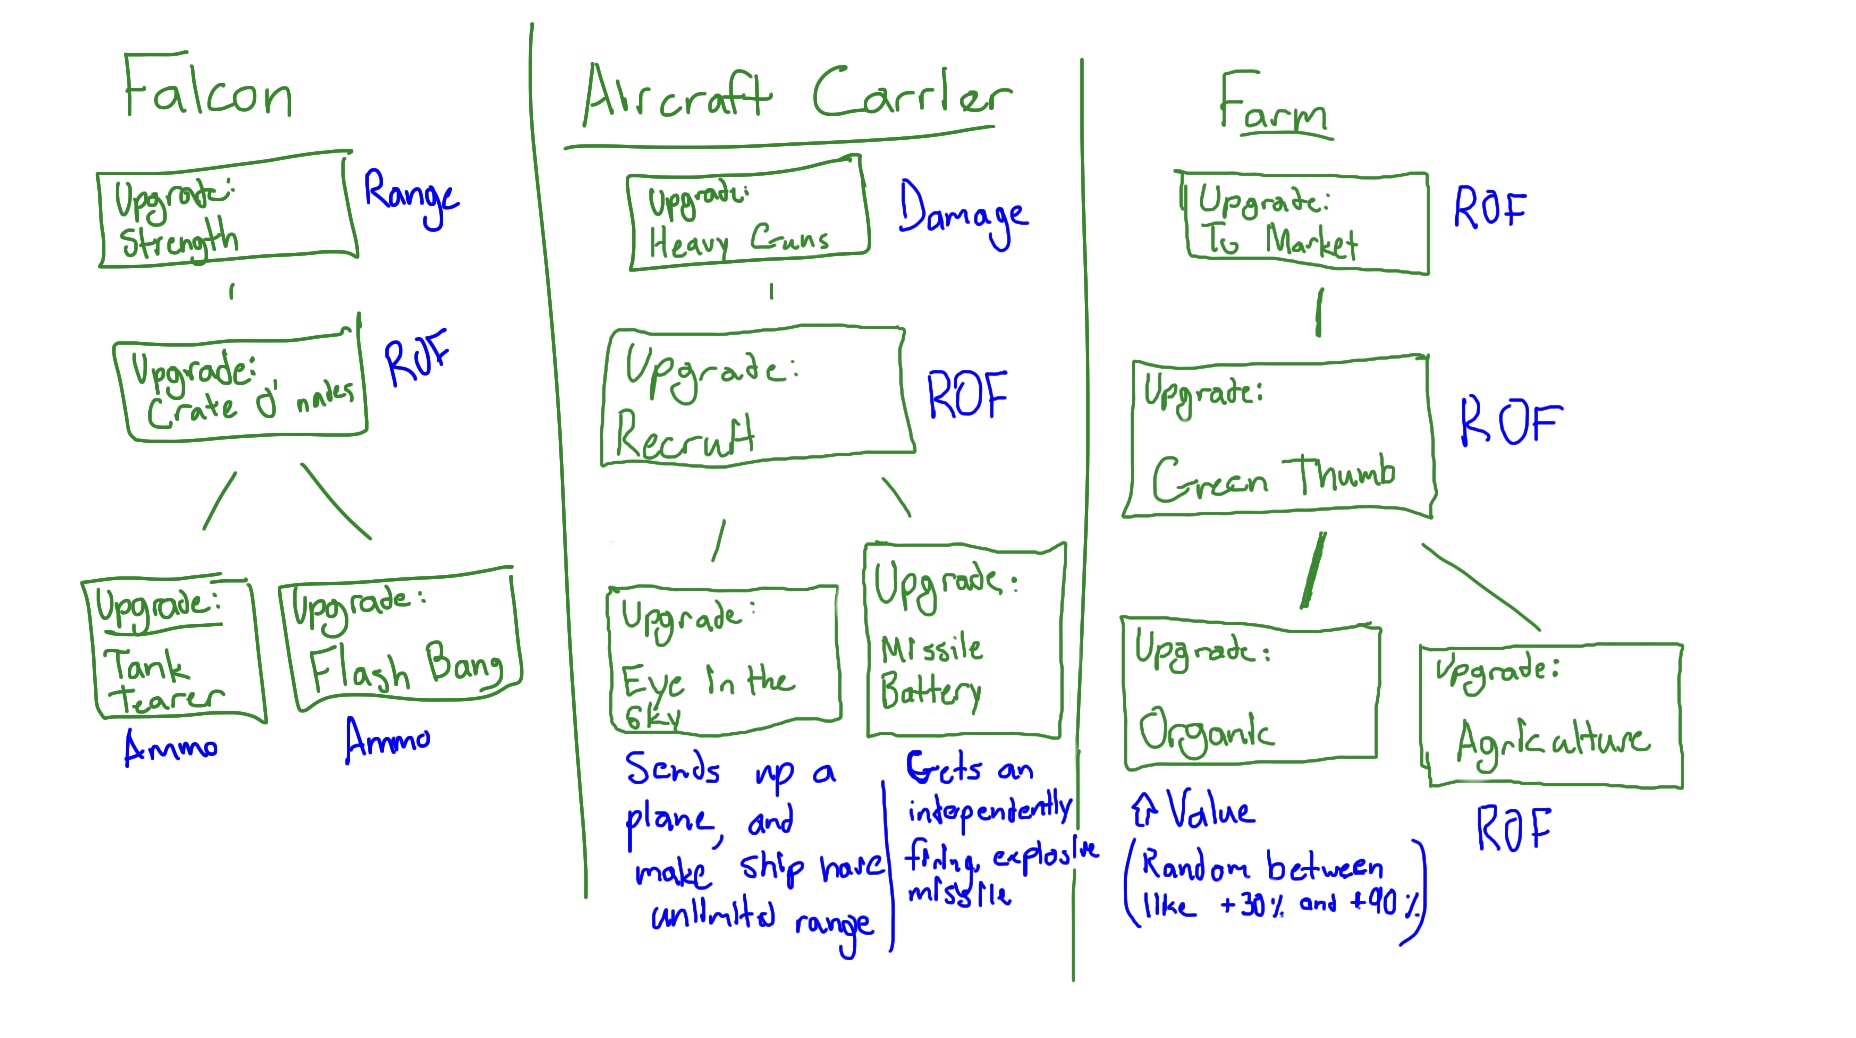 Falcon
Upgrade:
Strength
Range
Upgrade:
Crate O' nades
ROF
Upgrade:
Tank
Tearer
Ammo
Upgrade:
Flash Bang
Ammo
Aircraft Carrier
Upgrade:
Heavy Guns
Damage
Upgrade:
Recruit
ROF
Upgrade:
Eye in the
Sky
Sends up a
plane, and
make ship have
unlimitd range
Upgrade:
Missile
Battery
Gets an
indepentently
firing, explosive
missile
Farm
Upgrade:
To Market
ROF
Upgrade:
Green Thumb
ROF
Upgrade:
Organic
⇧ Value
(Random between
like +30% and +90%)
Upgrade:
Agriculture
ROF